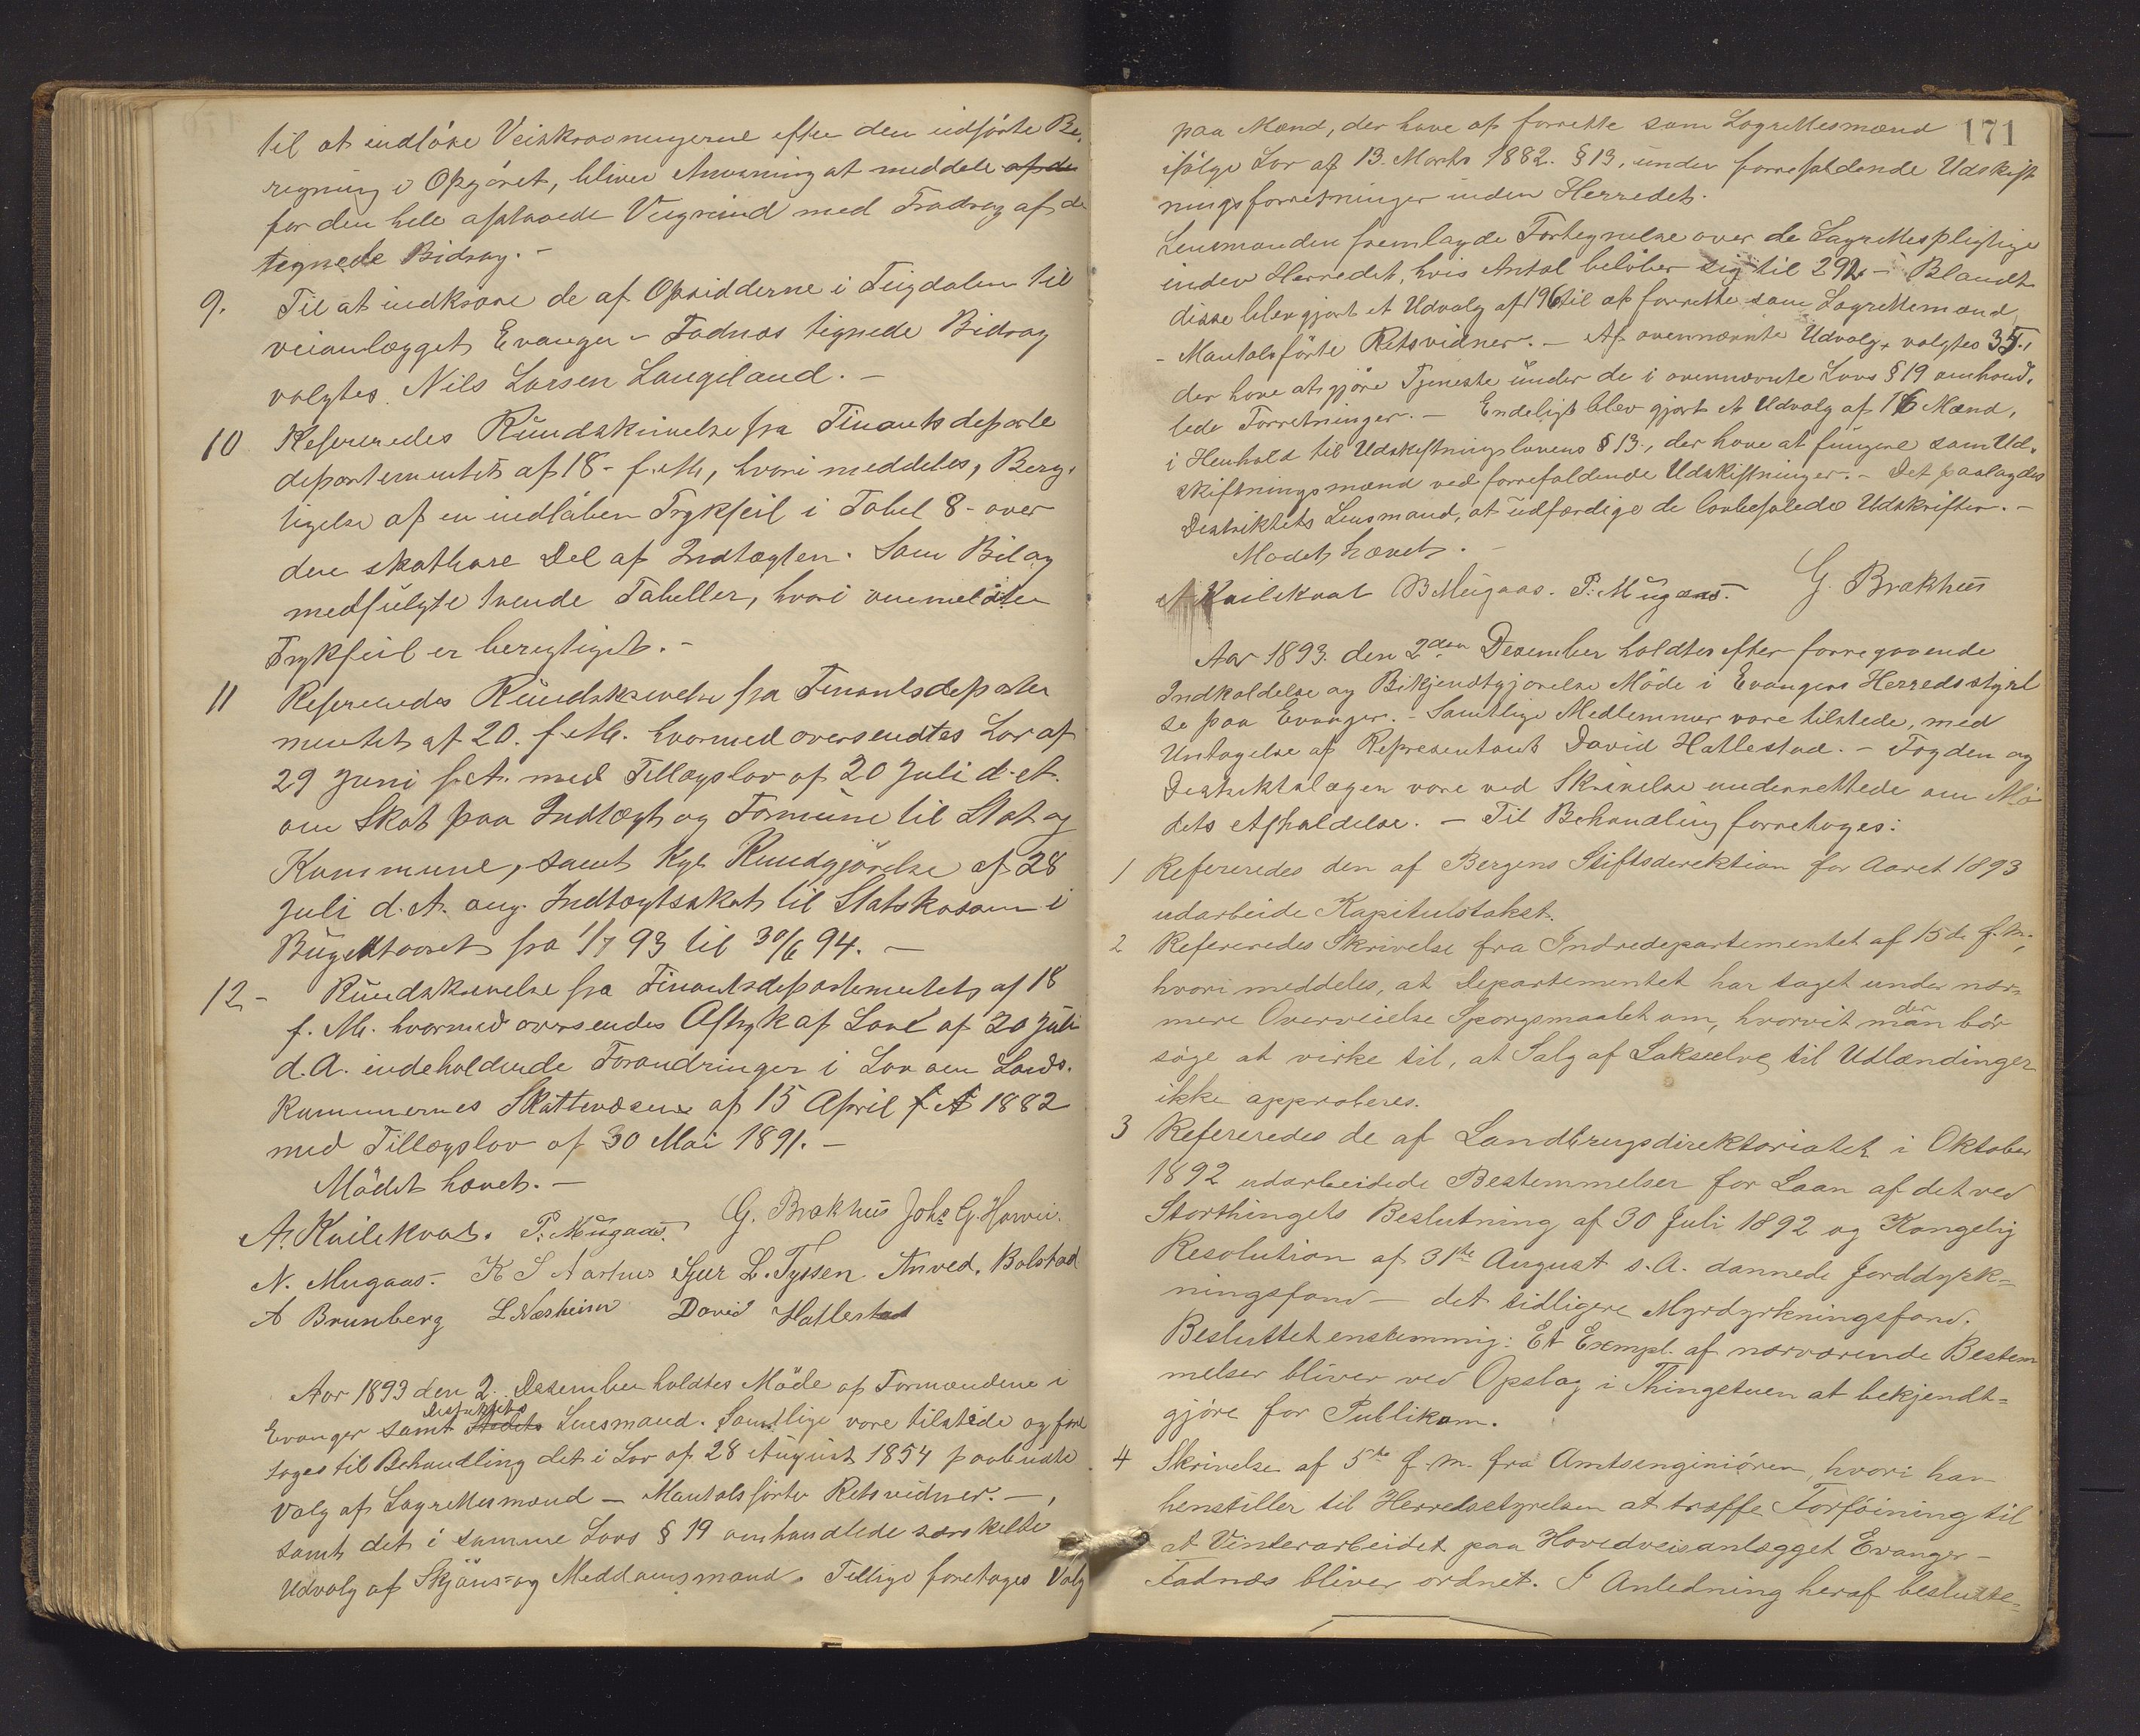 til at indløse Veiskraaningerne efter den indførte Be-
regning i Opgjöret, bliver Anvisning at meddele af de
for den hele afstaaede Veigrund med Fradrag af de
tegnede Bidrag. -
9. Til at indkræve de af Opsidderne i Teigdalen til
veianlægget Evanger - Fadnæs tegnede Bidrag
valgtes Nils Larsen Langeland. -
10 Refereredes Rundskrivelse fra Finantsdeparte
departementet af 18 - f. M., hvori meddeles, Berig-
tigelse af en indløben Trykfeil i Tabel 8 - over
den skatbare Del af Indtægten. Som Bilag
medfulgte tvende Tabeller, hvori anmeldte
Trykfeil er berigtiget. -
11 Refereredes Rundskrivelse fra Finantsdeparte
mentet af 20. f. M. hvormed oversendtes Lov af
29 Juni f. A. med Tillægslov af 20 Juli d. A.
om Skat paa Indtægt og Formue til Stat og
Kommune, samt Kgl. Kundgjörelse af 28
Juli d. A. ang. Indtægtsskat til Statskassen i
Budgetaaret fra 1/7 93 til 30/6 94. -
12 - Rundskrivelse fra Finantsdepartementet af 18
f. M. hvormed oversendes Aftryk af Lov af 20 Juli
d. A. indeholdende Forandringer i Lov om Lands-
kommunernes Skattevæsen af 15 April f A 1882
med Tillægslov af 30 Mai 1891. -
Mödet hævet. -
A. Kvilekval. P. Mügaas. G. Brakhus Johs G. Horvei.
N. Mugaas. K S Aarhus Sjur L. Tyssen Anved. Bolstad
A Brunborg L Næsheim David Hatlestad
Aar 1893 den 2. Desember holdtes Möde af Formændene i
Distriktets
Evanger samt Stedets Lensmand. Samtlige vare tilstede og fore
toges til Behandling det i Lov af 28 August 1854 paabudte
Valg af Lagrettesmænd - Mantalsførte Retsvidner. -,
samt det i samme Lovs § 19 omhandlede særskilte
Udvalg af Skjöns- og Meddomsmænd. Tillige foretoges Valg
171
paa Mænd, der have at forrette som Lagrettesmænd
ifölge Lov af 13. Marts 1882. § 13, under forrefaldende Udskift
ningsforretninger inden Herredet.
Lensmanden fremlagde Fortegnelse over de Lagrettespligtige
inden Herredet, hvis Antal belöber sig til 292. - Blandt
disse blev gjort et Udvalg af 196 til at forrette som Lagrettemænd
- Mantalsförte Retsvidner. - Af ovennævnte Udvalg valgtes 35.,
der have at gjöre Tjeneste under de i ovennævnte Lovs § 19 omhand-
lede Forretninger. - Endeligt blev gjort et Udvalg af 16 Mænd,
i Henhold til Udskiftningslovens § 13., der have at fungere som Ud-
skiftningsmænd ved forrefaldende Udskiftninger. - Det paalagdes
Distriktets Lensmand, at udfærdige de lovbefalede Udskrifter. -
Mødet hævet. -
A Kvilekval B Mugaas. P. Mügaas. G. Brakhus
Aar 1893. den 2den Desember holdtes efter forregaaende
Indkaldelse og Bekjendtgjørelse Möde i Evangers Herredsstyrel
se paa Evanger. - Samtlige Medlemmer vare tilstede, med
Untagelse af Representant David Hatlestad. - Fogden og
Distriktslægen vare ved Skrivelse underrettede om Mö
dets Afholdelse. - Til Behandling forretoges:
1 Refereredes den af Bergens Stiftsdirektion for Aaret 1893
udarbeide Kapitulstakst.
2 Refereredes Skrivelse fra Indredepartementet af 15de f. m.,
hvori meddeles, at Departementet har taget under nær-
mere Overveielse Spørgsmaalet om, hvorvit man bör
der
söge at virke til, at Salg af Lakseelve til Udlændinger
ikke approberes.
3 Refereredes de af Landbrugsdirektoriatet i Oktober
1892 udarbeidede Bestemmelser for Laan af det ved
Storthingets Beslutning af 30 Juli 1892 og Kongelig
Resolution af 31te August s. A. dannede Jorddyrk=
ningsfond - det tidligere Myrdyrkningsfond.
Besluttet enstemmig: Et Exempl. af nærværende Bestem
melser bliver ved Opslag i Thingstuen at bekjendt=
gjöre for Publikum.
4 Skrivelse af 5te f. m. fra Amtsingeniören, hvori han
henstiller til Herredsstyrelsen at træffe Forföining til
at Vinterarbeidet paa Hovedveisanlægget Evanger -
Fadnæs bliver ordnet. I Anledning heraf beslutte=